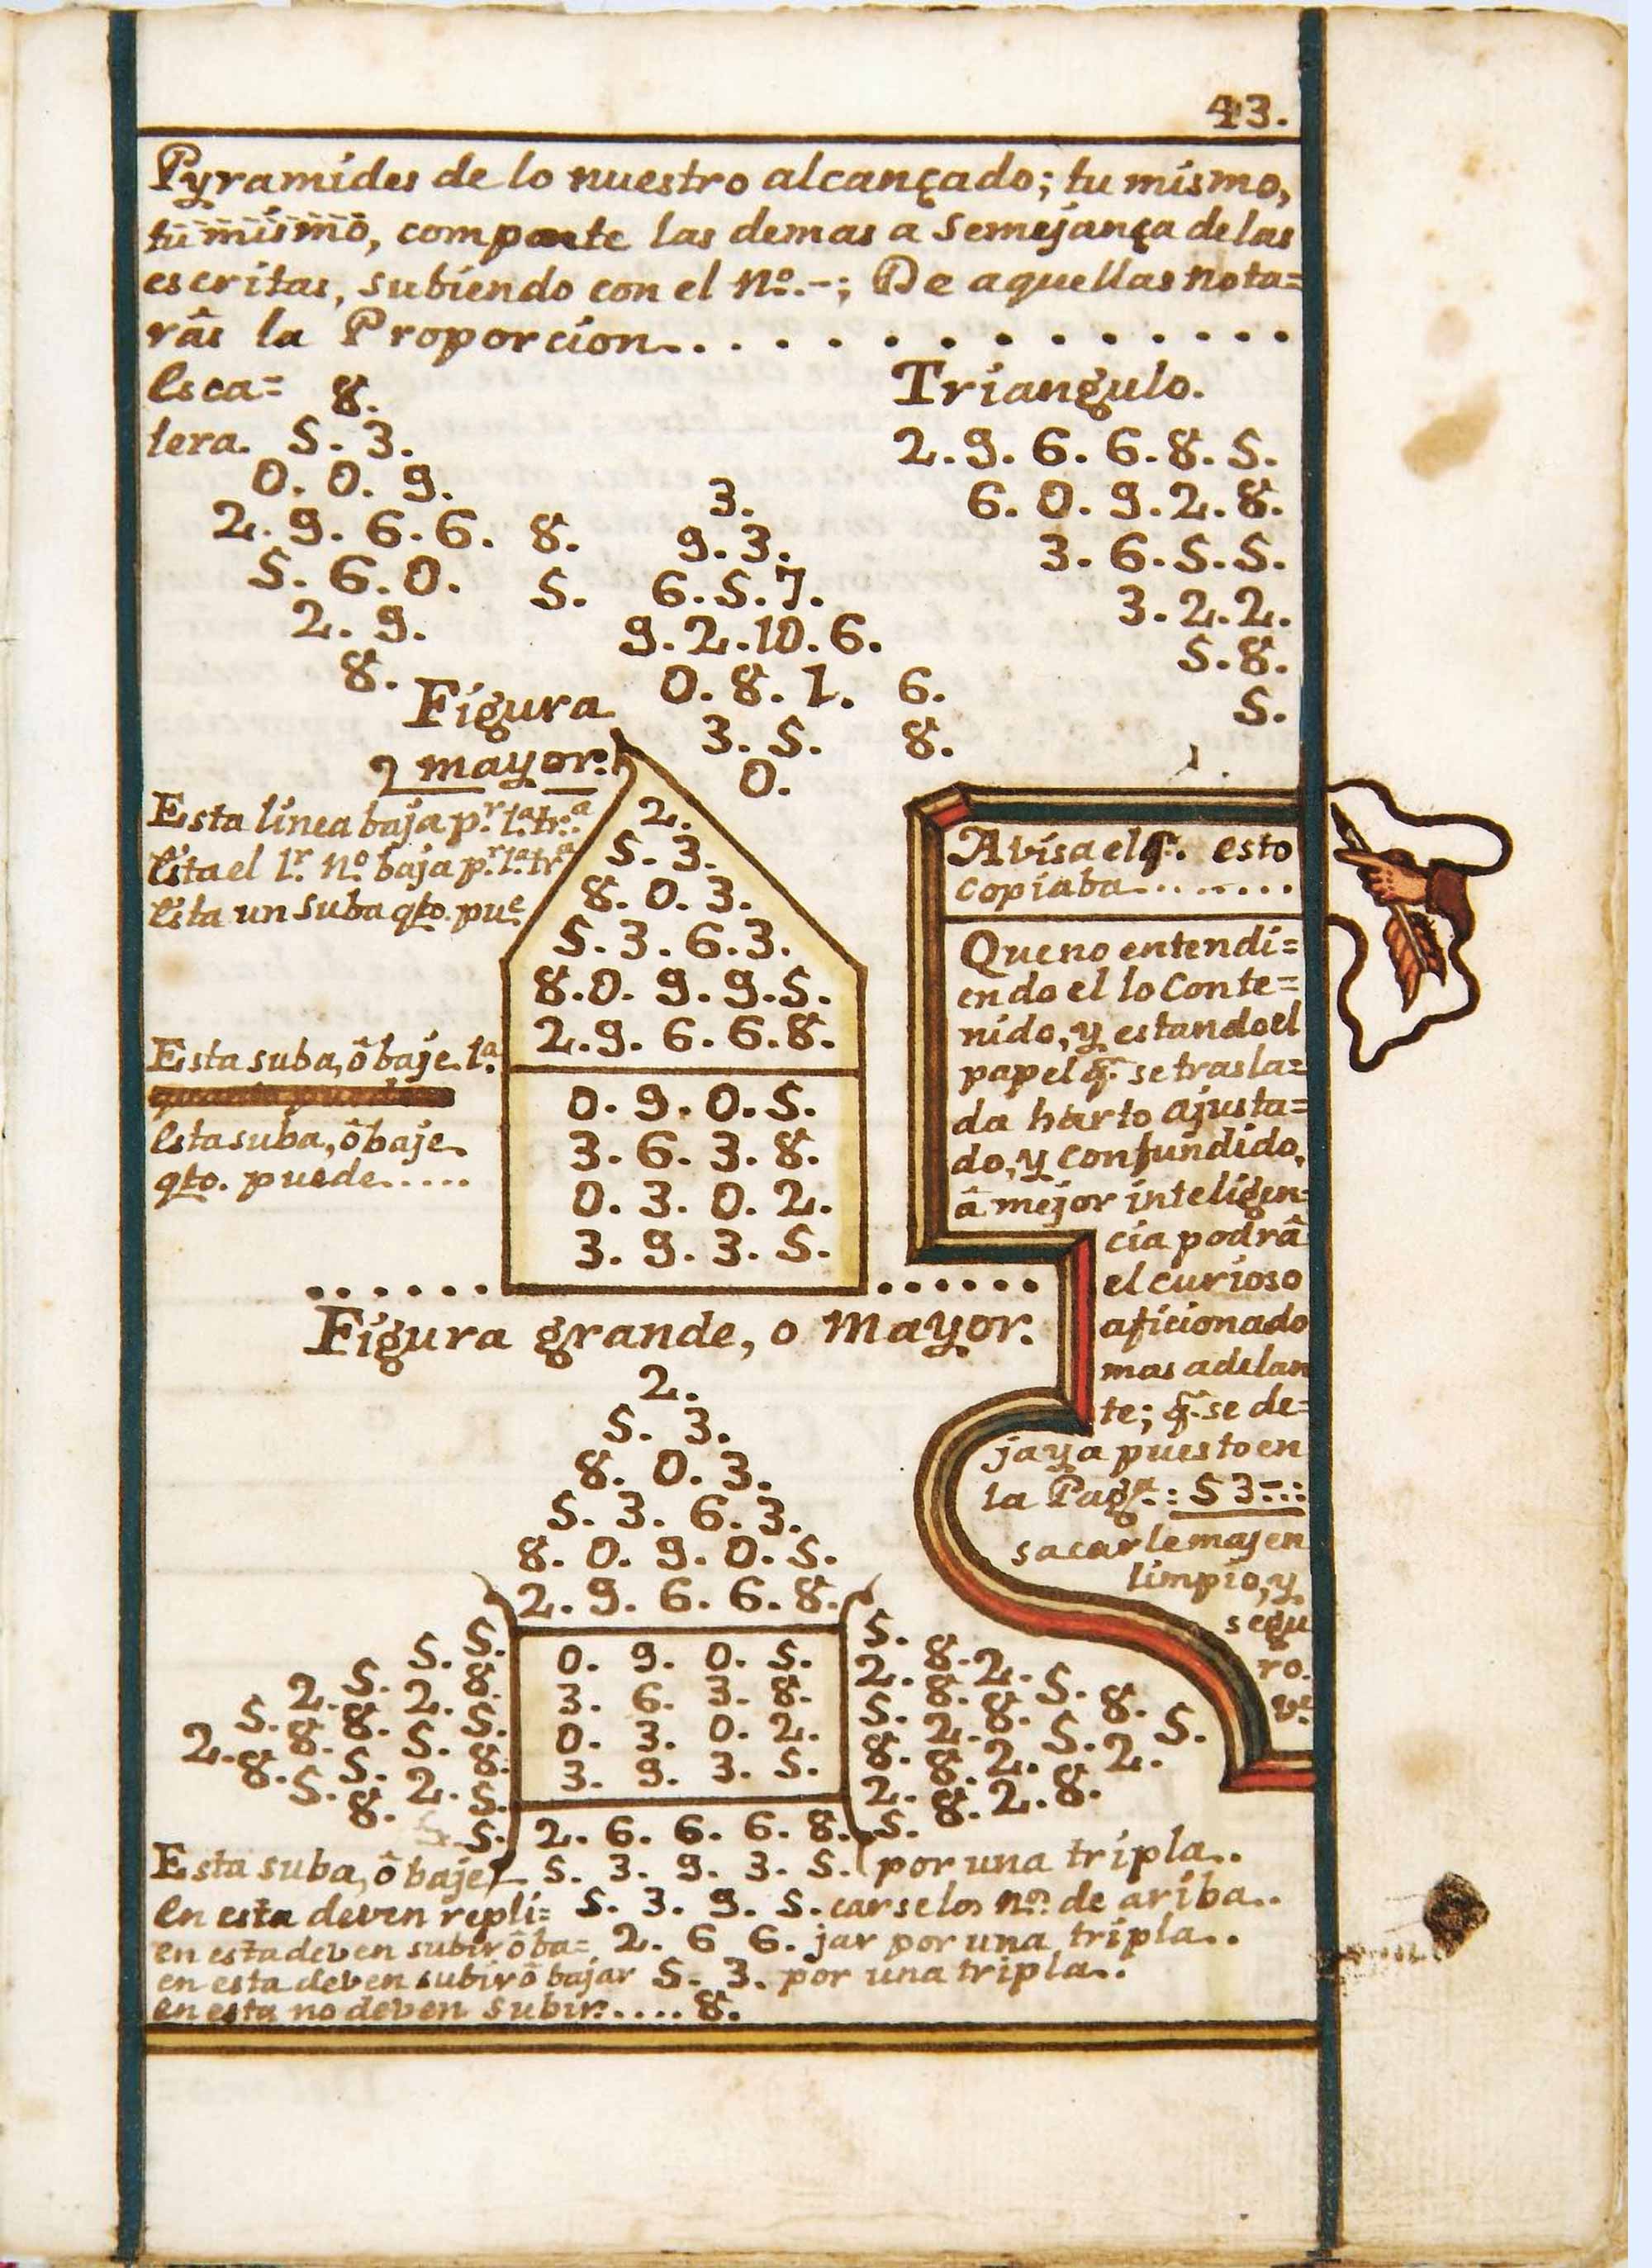 43.
Pyramides de lo nuestro alcançado; tu mismo,
tu mismo, componte las demas a semejança de las
escritas, subiendo con el Nº.-; De aquellas nota=
râs la Proporcion..............
Esca=
lera.
8.
5. 3.
0. 0. 9.
2. 9. 6. 6. 8.
5. 6. 0. 5.
2. 9.
8.
3.
9. 3.
6. 5. 7.
9. 2. 10. 6.
0. 8. 1. 6.
3. 5. 8.
0.
Triangulo.
2. 9. 6. 6. 8. 5.
6. 0. 9. 2. 8.
3. 6. 5. 5.
3. 2. 2.
5. 8.
5.
Figura
mayor.
Esta linea baja pr. 1ª. trª.
Esta el 1r. Nº. baja pr. 1ª. trª
Esta un suba qto. pue.
2.
5. 3.
8. 0. 3.
5. 3. 6. 3.
8. 0. 9. 9. 5.
2. 9. 6. 6. 8.
Esta suba, ô baje. 1ª.
Esta suba, ô baje
qto. puede.....
0. 9. 0. 5.
3. 6. 3. 8.
0. 3. 0. 2.
3. 9. 3. 5.
Avisa el q. esto
copiaba........
Que no entendi=
endo el lo Conte=
nido, y estando el
papel q. se trasla=
da harto ajusta=
do, y confundido,
â mejor inteligen=
cia podrâ
el curioso
aficionado
mas adelan
te; q. se de=
ja ya puesto en
la Pagª.: 53
sacarle mas en
limpio, y
segu
ro.
Figura grande, o Mayor.
2.
5. 3.
8. 0. 3.
5. 3. 6. 3.
8. 0. 9. 0. 5.
2. 9. 6. 6. 8.
0. 9. 0. 5.
3. 6. 3. 8.
0. 3. 0. 2.
3. 9. 3. 5.
5. 5.
2. 5. 2. 8.
5. 8. 8. 5. 5.
2. 8. 5. 5. 2. 8.
5. 8. 5.
5.
5. 8. 2.
2. 8. 8. 5. 8.
5. 2. 2. 5. 2. 5.
8. 8. 2. 8.
2. 8.
5.
2. 6. 6. 6. 8.
Esta suba, ô baje 5. 3. 9. 3. 5. por una tripla..
En esta deven repli= 5. 3. 9. 5. carse los nos. de ariba..
en esta deven subir ô ba= 2. 6 6. jar por una tripla..
en esta deven subir ô bajar 5. 3. por una tripla..
en esta no deven subir..... 8.